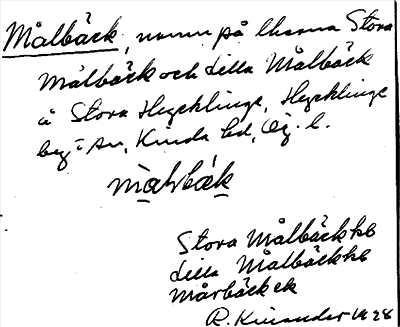 Målbäck, namn på lhsrna Stora
Målbäck och Lilla Målbäck
å Stora Hycklinge, Hycklinge
by i An, Kinda hd, Ög. l.
Stora Målbäck
Lilla Målbäck
Mårbäck
R. Kinander 1928